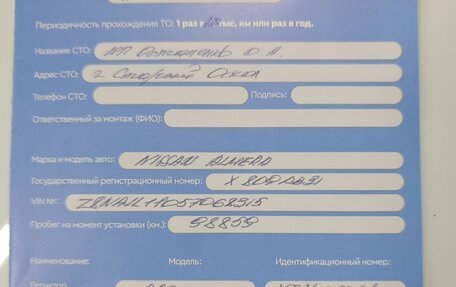 Периодичность прохождения ТО: 1 раз в 10 тыс. км или раз в год.
Название СТО: ИП О.А.
Адрес СТО: г. Старый Оскол
Телефон СТО: Подпись:
Ответственный за монтаж (ФИО):
Марка и модель авто: NISSAN ALMERA
Государственный регистрационный номер: X 809 31
VIN №: Z8NAJL11057068915
Пробег на момент установки (км.): 98859
Наименование: Модель: Идентификационный номер:
Редуктор